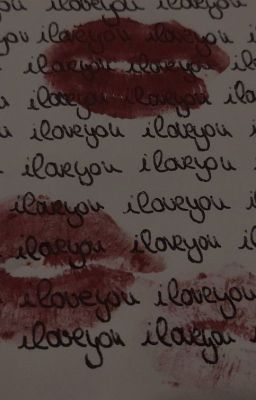 iloveyou iloveyou
iloveyou iloveyou
iloveyou iloveyou
iloveyou iloveyou
iloveyou iloveyou
iloveyou iloveyou
iloveyou iloveyou
iloveyou iloveyou
iloveyou iloveyou
iloveyou iloveyou